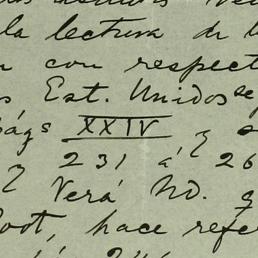 la lectura de l
n con respect
s Est. Unidos se
págs XXIV y
231 á 26
y Verá Vd. q
oot, hace refe